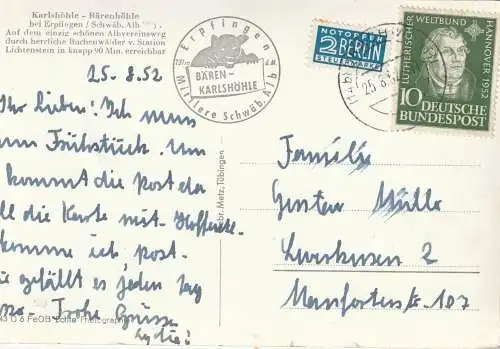 Karlshöhle – Bärenhöhle
bei Erpfingen / Schwäb. Alb
Auf dem einzig schönen Albvereinsweg
durch herrliche Buchenwälder v. Station
Lichtenstein in knapp 90 Min. erreichbar
25.8.52
Ihr Lieben! Ich muss
zum Frühstück. Um
kommt die Post da
soll die Karte mit. Hoffentl.
komme ich, post.
gefällt es jeden Tag
Frohe Grüsse
Erpfingen
BÄREN-
KARLSHÖHLE
Mittlere Schwäb. Alb
Gebr. Metz, Tübingen
NOTOPFER
2 BERLIN
STEUERMARKE
LUTHERISCHER WELTBUND
HANNOVER 1952
10 DEUTSCHE
BUNDESPOST
Familie
Gustav Müller
Leverkusen 2
Manforterstr. 107